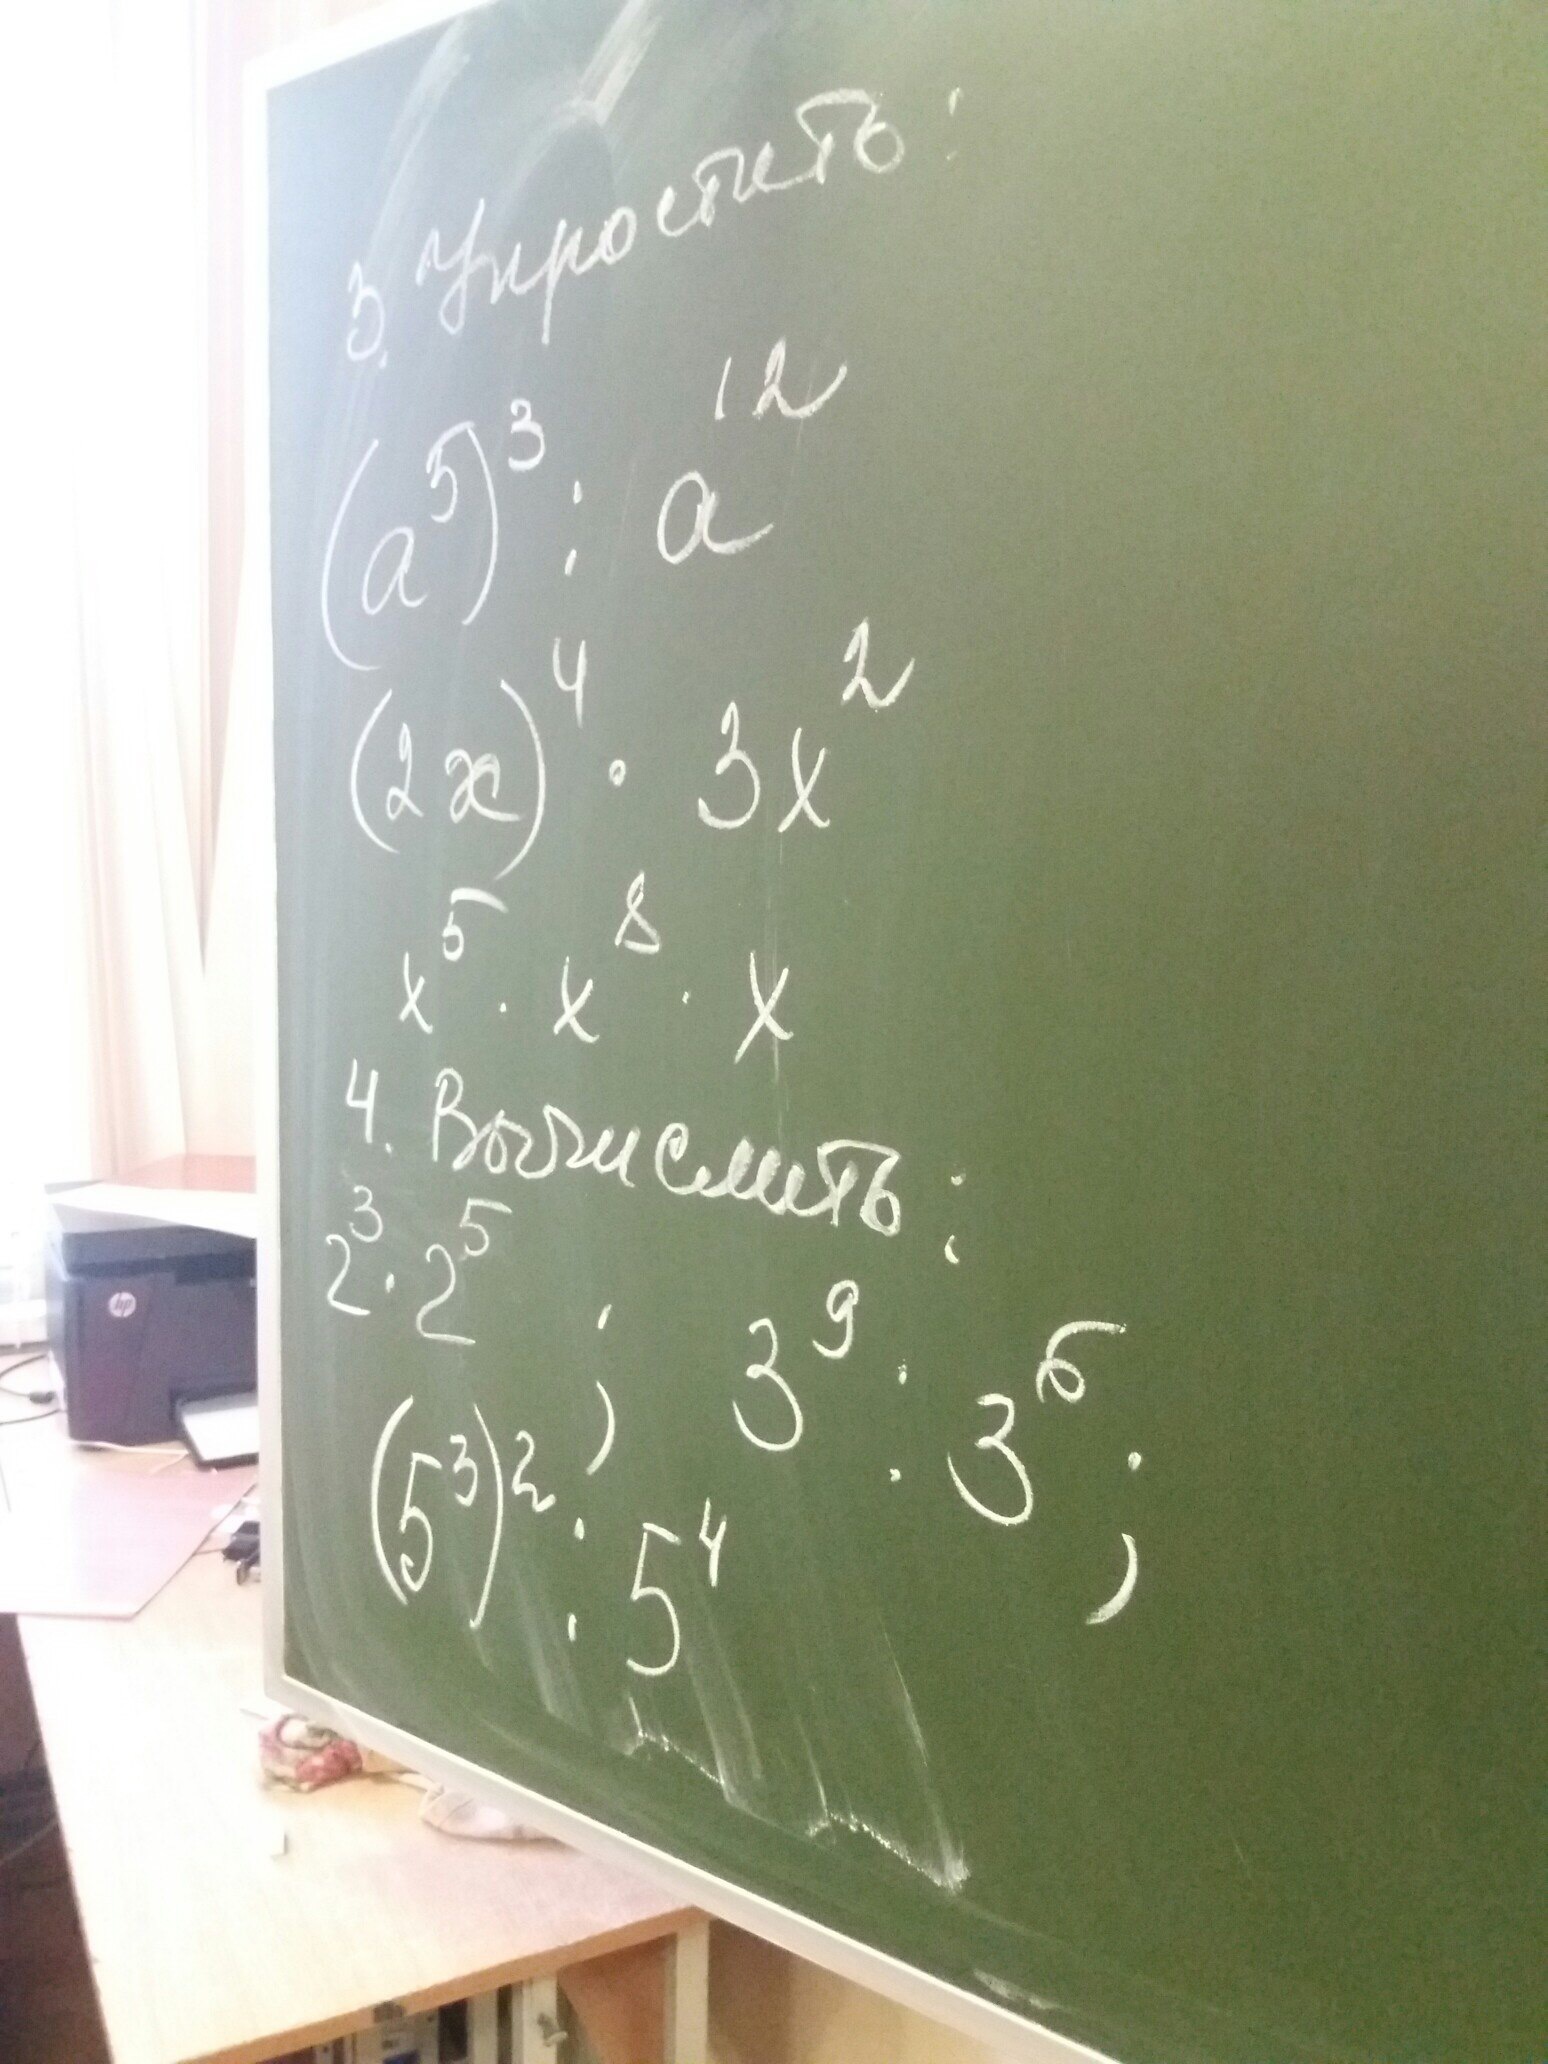 3. Упростить:
(a⁵)³ : a¹²
(2x)⁴ · 3x²
x⁵ · x⁸ · x
4. Вычислить:
2³ · 2⁵ ; 3⁹ : 3⁶ ;
(5³)² : 5⁴
hp